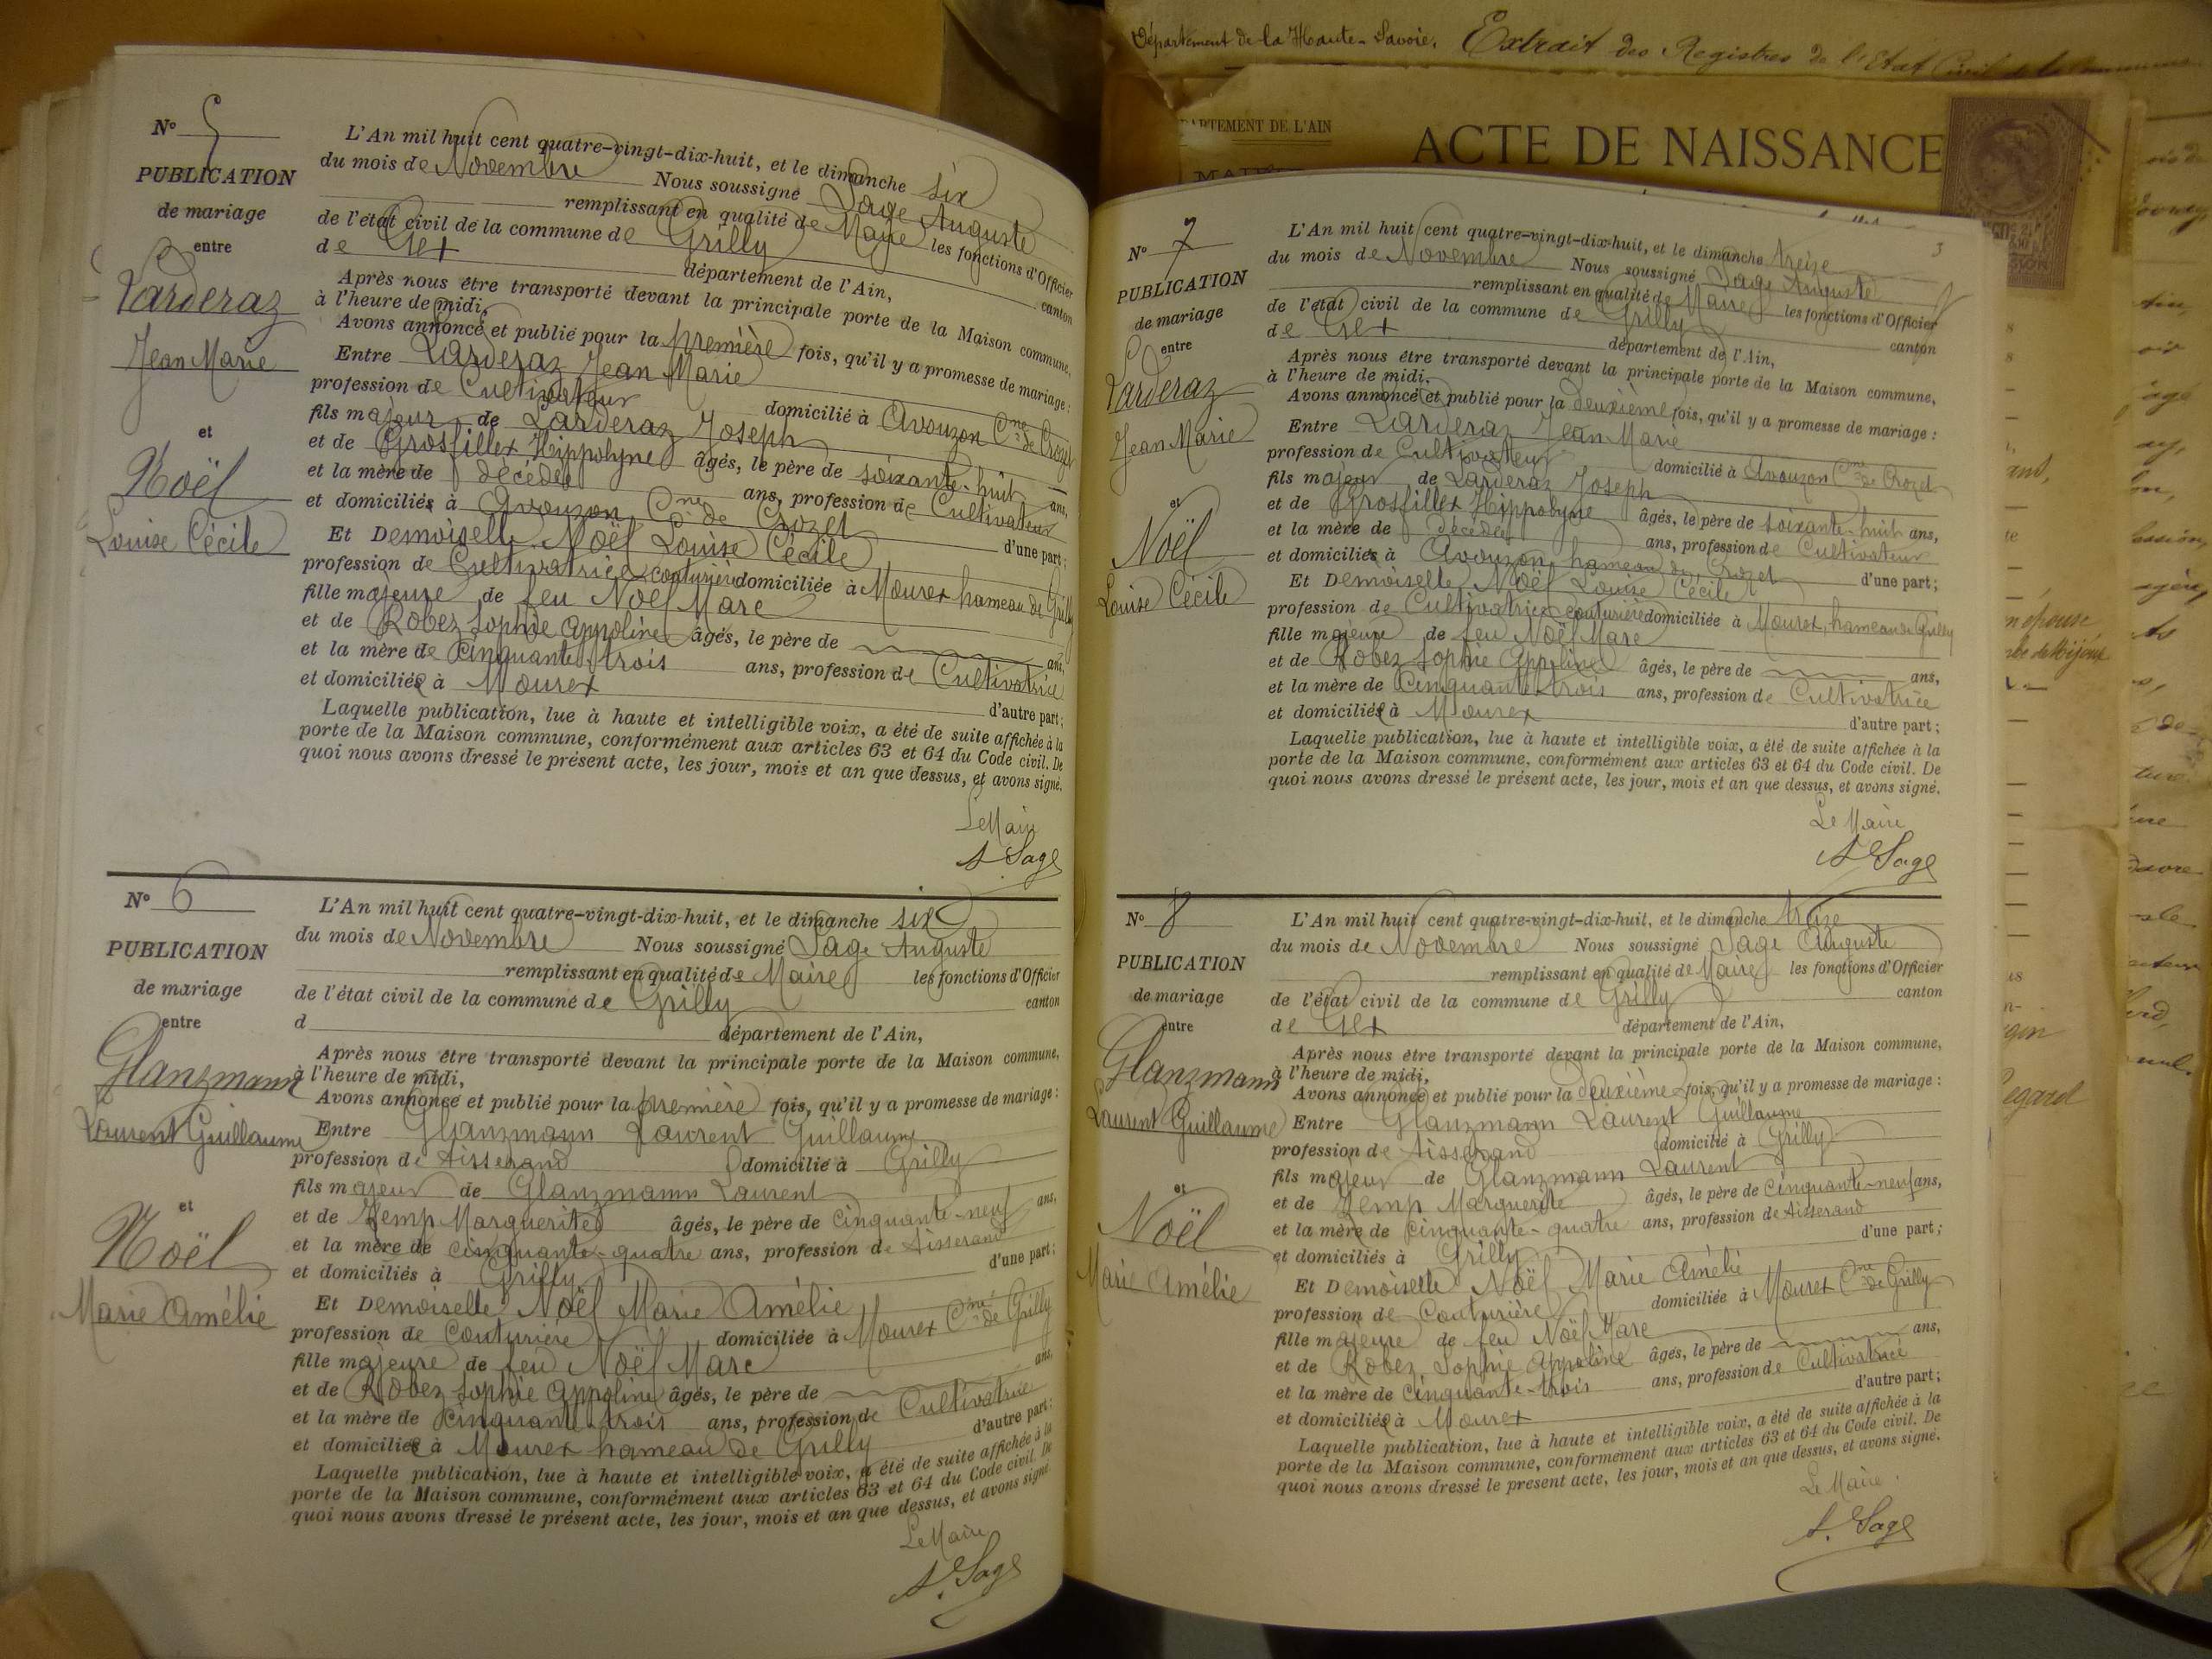 N° 5
PUBLICATION
de mariage
entre
Larderaz
Jean Marie
et
Noël
Louise Cécile
L'An mil huit cent quatre-vingt-dix-huit, et le dimanche six
du mois de Novembre Nous soussigné Sage Auguste
remplissant en qualité de Maire les fonctions d'Officier
de l'état civil de la commune de Grilly canton
de Gex département de l'Ain,
Après nous être transporté devant la principale porte de la Maison commune,
à l'heure de midi,
Avons annoncé et publié pour la première fois, qu'il y a promesse de mariage :
Entre Larderaz Jean Marie
profession de Cultivateur domicilié à Avouzon Cne de Crozet
fils majeur de Larderaz Joseph
et de Grosfillex Hippolyne âgés, le père de soixante-huit ans,
et la mère de décédée ans, profession de Cultivateur
et domiciliés à Avouzon Cne de Crozet d'une part ;
Et Demoiselle Noël Louise Cécile
profession de Cultivatrice couturière domiciliée à Mourex hameau de Grilly
fille majeure de feu Noël Marc
et de Robez Sophie Appoline âgés, le père de ans,
et la mère de cinquante-trois ans, profession de Cultivatrice
et domiciliée à Mourex d'autre part ;
Laquelle publication, lue à haute et intelligible voix, a été de suite affichée à la
porte de la Maison commune, conformément aux articles 63 et 64 du Code civil. De
quoi nous avons dressé le présent acte, les jour, mois et an que dessus, et avons signé.
Le Maire
A. Sage
N° 6
PUBLICATION
de mariage
entre
Glanzmann
Laurent Guillaume
et
Noël
Marie Amélie
L'An mil huit cent quatre-vingt-dix-huit, et le dimanche six
du mois de Novembre Nous soussigné Sage Auguste
remplissant en qualité de Maire les fonctions d'Officier
de l'état civil de la commune de Grilly canton
d département de l'Ain,
Après nous être transporté devant la principale porte de la Maison commune,
à l'heure de midi,
Avons annoncé et publié pour la première fois, qu'il y a promesse de mariage :
Entre Glanzmann Laurent Guillaume
profession de tisserand domicilié à Grilly
fils majeur de Glanzmann Laurent
et de Kemp Marguerite âgés, le père de cinquante-neuf ans,
et la mère de cinquante-quatre ans, profession de tisserand
et domiciliés à Grilly d'une part ;
Et Demoiselle Noël Marie Amélie
profession de Couturière domiciliée à Mourex Cne de Grilly
fille majeure de feu Noël Marc
et de Robez Sophie Appoline âgés, le père de ans,
et la mère de cinquante-trois ans, profession de Cultivatrice
et domiciliée à Mourex hameau de Grilly d'autre part ;
Laquelle publication, lue à haute et intelligible voix, a été de suite affichée à la
porte de la Maison commune, conformément aux articles 63 et 64 du Code civil. De
quoi nous avons dressé le présent acte, les jour, mois et an que dessus, et avons signé.
Le Maire
A. Sage
Département de la Haute-Savoie. Extrait des Registres de l'Etat Civil de la Commune
DÉPARTEMENT DE L'AIN
ACTE DE NAISSANCE
3
N° 7
PUBLICATION
de mariage
entre
Larderaz
Jean Marie
et
Noël
Louise Cécile
L'An mil huit cent quatre-vingt-dix-huit, et le dimanche treize
du mois de Novembre Nous soussigné Sage Auguste
remplissant en qualité de Maire les fonctions d'Officier
de l'état civil de la commune de Grilly canton
de Gex département de l'Ain,
Après nous être transporté devant la principale porte de la Maison commune,
à l'heure de midi,
Avons annoncé et publié pour la deuxième fois, qu'il y a promesse de mariage :
Entre Larderaz Jean Marie
profession de Cultivateur domicilié à Avouzon Cne de Crozet
fils majeur de Larderaz Joseph
et de Grosfillex Hippolyne âgés, le père de soixante-huit ans,
et la mère de décédée ans, profession de Cultivateur
et domiciliés à Avouzon hameau de Crozet d'une part ;
Et Demoiselle Noël Louise Cécile
profession de Cultivatrice couturière domiciliée à Mourex, hameau de Grilly
fille majeure de feu Noël Marc
et de Robez Sophie Appoline âgés, le père de ans,
et la mère de cinquante-trois ans, profession de Cultivatrice
et domiciliée à Mourex d'autre part ;
Laquelle publication, lue à haute et intelligible voix, a été de suite affichée à la
porte de la Maison commune, conformément aux articles 63 et 64 du Code civil. De
quoi nous avons dressé le présent acte, les jour, mois et an que dessus, et avons signé.
Le Maire
A. Sage
N° 8
PUBLICATION
de mariage
entre
Glanzmann
Laurent Guillaume
et
Noël
Marie Amélie
L'An mil huit cent quatre-vingt-dix-huit, et le dimanche treize
du mois de Novembre Nous soussigné Sage Auguste
remplissant en qualité de Maire les fonctions d'Officier
de l'état civil de la commune de Grilly canton
de Gex département de l'Ain,
Après nous être transporté devant la principale porte de la Maison commune,
à l'heure de midi,
Avons annoncé et publié pour la deuxième fois, qu'il y a promesse de mariage :
Entre Glanzmann Laurent Guillaume
profession de tisserand domicilié à Grilly
fils majeur de Glanzmann Laurent
et de Kemp Marguerite âgés, le père de cinquante-neuf ans,
et la mère de cinquante-quatre ans, profession de tisserand
et domiciliés à Grilly d'une part ;
Et Demoiselle Noël Marie Amélie
profession de Couturière domiciliée à Mourex Cne de Grilly
fille majeure de feu Noël Marc
et de Robez Sophie Appoline âgés, le père de ans,
et la mère de cinquante-trois ans, profession de Cultivatrice
et domiciliée à Mourex d'autre part ;
Laquelle publication, lue à haute et intelligible voix, a été de suite affichée à la
porte de la Maison commune, conformément aux articles 63 et 64 du Code civil. De
quoi nous avons dressé le présent acte, les jour, mois et an que dessus, et avons signé.
Le Maire.
A. Sage